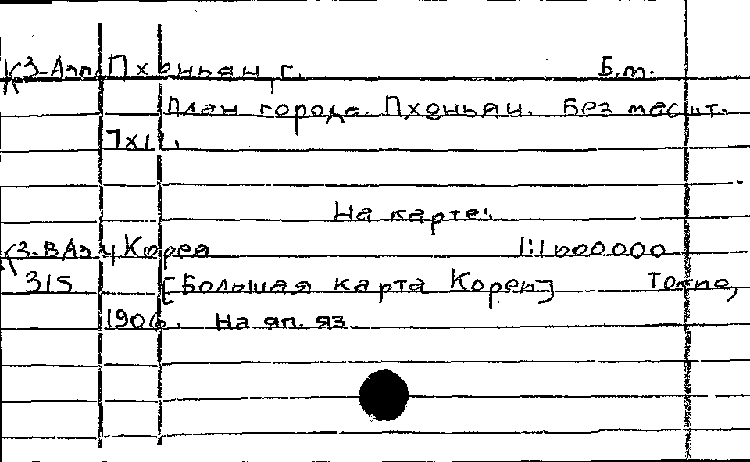 К З-Азп. Пхеньян, г. Б.м.
План города Пхеньян. Без масшт.
7х11.
На карте:
К З-ВАз 4 Корея 1:1000000
315 [Большая карта Кореи] Токио,
1906. На яп. яз